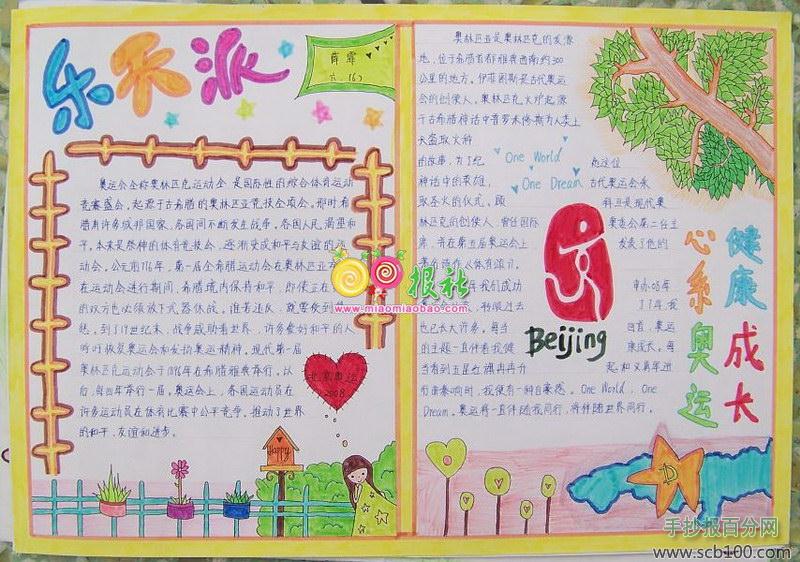 乐禾派
薛霏
六.(6)
奥运会全称奥林匹克运动会 是国际性的综合体育运动
竞赛盛会,起源于古希腊的奥林匹亚竞技会项会。那时希
腊有许多城邦国家,各国间不断发生战争。各国人民渴望和
平。本来是祭神的体育竞技会,逐渐变成和平与友谊的运
动会。公元前776年,第一届全希腊运动会在奥林匹亚
在运动会进行期间,希腊境内保持和平,即使正在
的双方也必须放下武器休战。谁若违反,就需受到
惩,到了19世纪末,战争威胁着世界,许多爱好和平的人
呼吁恢复奥运会和发扬奥运精神。现代第一届
奥林匹克运动会于1896年在希腊雅典举行。以
后,每四年举行一届。奥运会上,各国运动员在
许多运动员在体育比赛中公平竞争,推动了世界
的和平、友谊和进步。
报社
www.miaomiaobao.com
北京奥运
2008
Happy
奥林匹亚是奥林匹克的发源
地,位于希腊首都雅典西南约300
公里的地方。伊菲图斯是古代奥运
会的创使人。奥林匹克火炉起源
于古希腊神话中普罗米修斯为人类上
天盗取火种
的故事,为了纪 One World 念这位
神话中的英雄, One Dream 古代奥运会采
取圣火的仪式。顾 是现代奥
林匹克的创使人,曾任国际 奥委会第二任主
席,并在第五届奥运会上 发表了他的
我们成功 申办08年
也已长大许多。每当
的主题一直伴着我健 康成长,每
当看到五星红旗冉冉升 起,和义勇军进
行曲奏响时,我便有一种自豪感。One World,One
Dream。奥运将一直伴随我同行,将伴随世界同行。
Beijing
健康成长
心系奥运
手抄报百分网
www.scb100.com